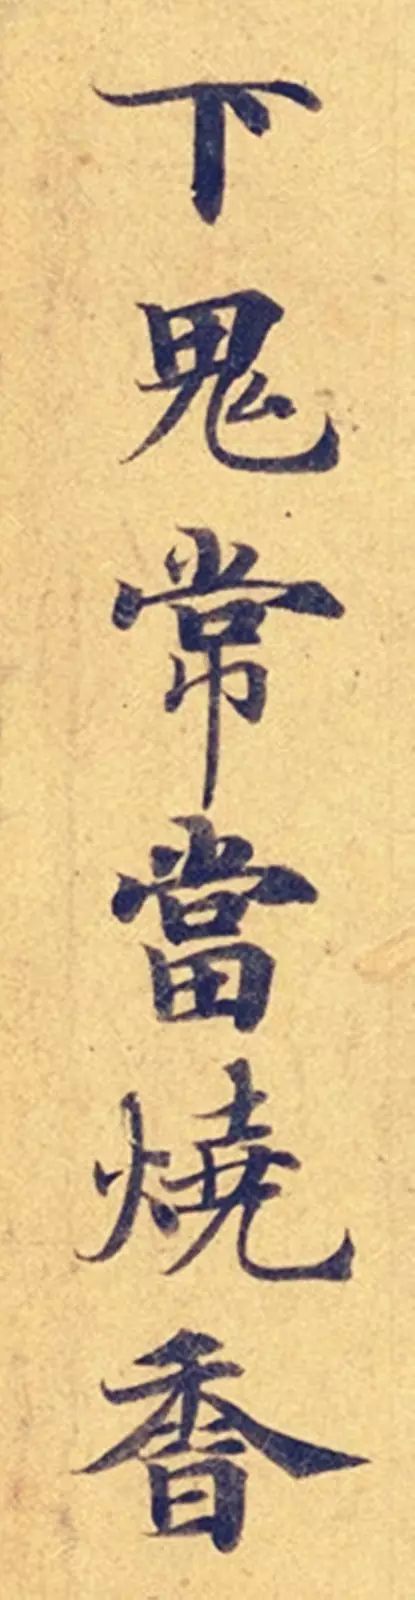 下鬼常當燒香